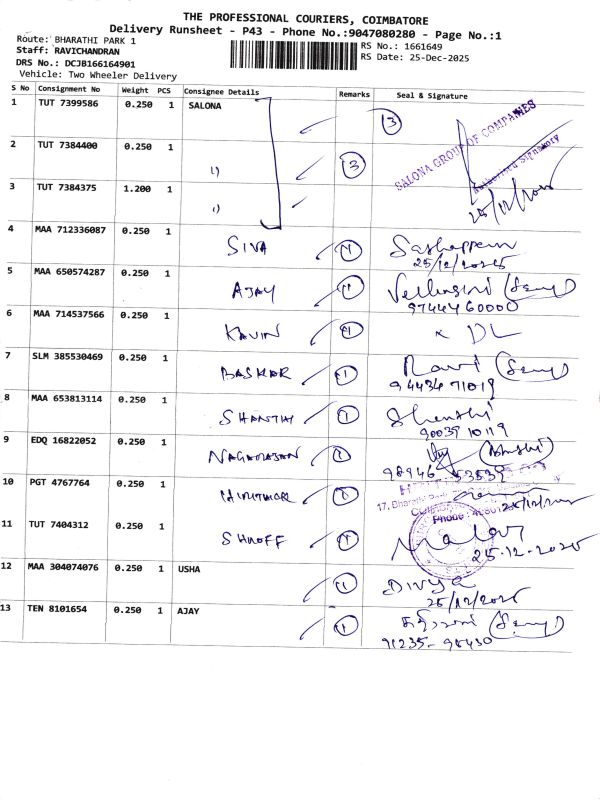 THE PROFESSIONAL COURIERS, COIMBATORE
Delivery Runsheet - P43 - Phone No.:9047080280 - Page No.:1
Route: BHARATHI PARK 1
Staff: RAVICHANDRAN
DRS No.: DCJB166164901
Vehicle: Two Wheeler Delivery
RS No.: 1661649
RS Date: 25-Dec-2025
S No Consignment No Weight PCS Consignee Details Remarks Seal & Signature
1 TUT 7399586 0.250 1 SALONA 3
SALONA GROUP OF COMPANIES
Authorised Signatory
25/12/2025
2 TUT 7384400 0.250 1 〃 3
3 TUT 7384375 1.200 1 〃
4 MAA 712336087 0.250 1 SIVA 1
25/12/2025
5 MAA 650574287 0.250 1 AJAY 1
9744460000
6 MAA 714537566 0.250 1 KAVIN 1 x DL
7 SLM 385530469 0.250 1 BASKAR 1 Ravi
94434 71019
8 MAA 653813114 0.250 1 SHANTHI 1 Shanthi
90039 10119
9 EDQ 16822052 0.250 1 NAGARAJAN 1
98946 53539
10 PGT 4767764 0.250 1 1
17, Bharathi
Phone
25/12/2025
11 TUT 7404312 0.250 1 SHROFF 1 Malar
25-12-2025
12 MAA 304074076 0.250 1 USHA 1 Divya
25/12/2025
13 TEN 8101654 0.250 1 AJAY 1
91235-98430